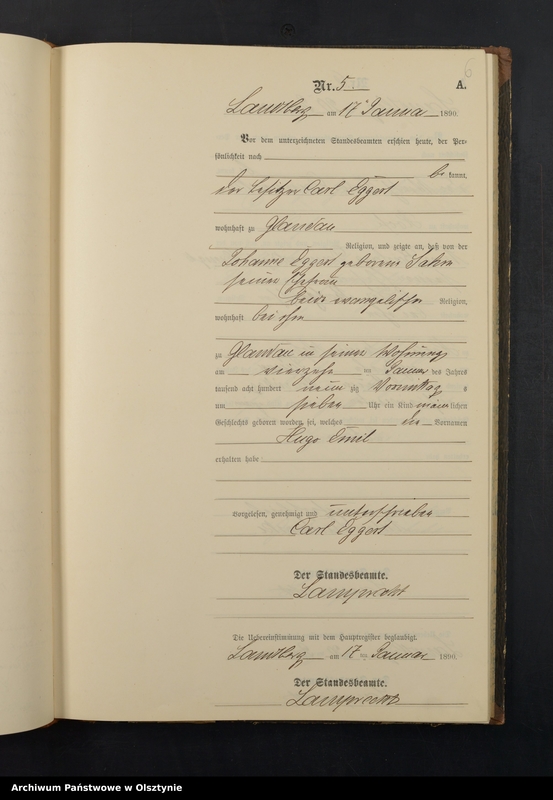 6
Nr. 5. A.
Landsberg am 17 Januar 1890.
Vor dem unterzeichneten Standesbeamten erschien heute, der Per-
sönlichkeit nach
be kannt,
der Besitzer Carl Eggert
wohnhaft zu Glandau
Religion, und zeigte an, daß von der
Johanne Eggert geborene
seiner Ehefrau
beide evangelischer Religion,
wohnhaft bei ihm
zu Glandau in seiner Wohnung
am vierzehn ten Januar des Jahres
tausend acht hundert neun zig Vormittag s
um sieben Uhr ein Kind männ lichen
Geschlechts geboren worden sei, welches die Vornamen
Hugo Emil
erhalten habe
Vorgelesen, genehmigt und unterschrieben
Carl Eggert
Der Standesbeamte.
Lamprecht
Die Uebereinstimmung mit dem Hauptregister beglaubigt.
Landsberg am 17 ten Januar 1890.
Der Standesbeamte.
Lamprecht
Archiwum Państwowe w Olsztynie